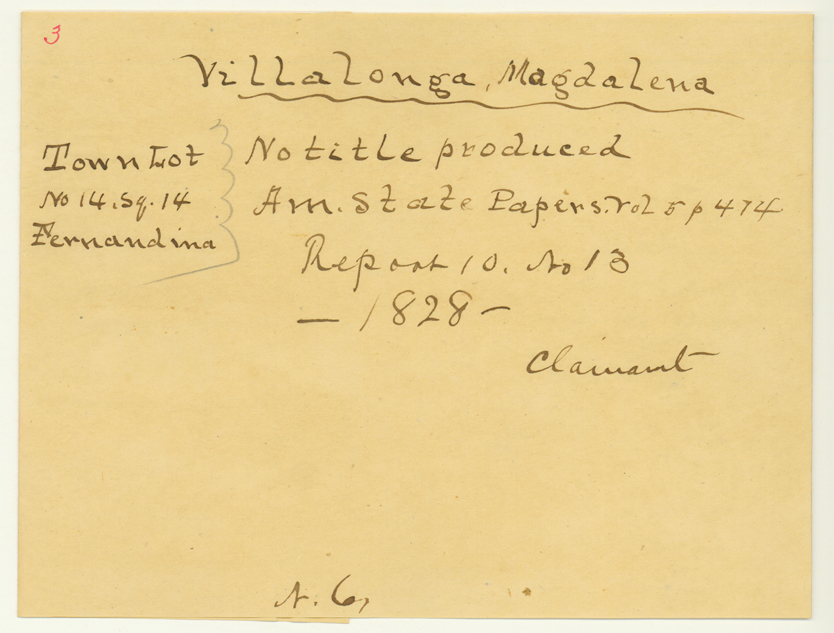 3
Villalonga, Magdalena
Town Lot
No 14. Sq. 14
Fernandina
No title produced
Am. State Papers. Vol 5 p 474
Report 10. No 13
— 1828 —
Claimant
N. 6,